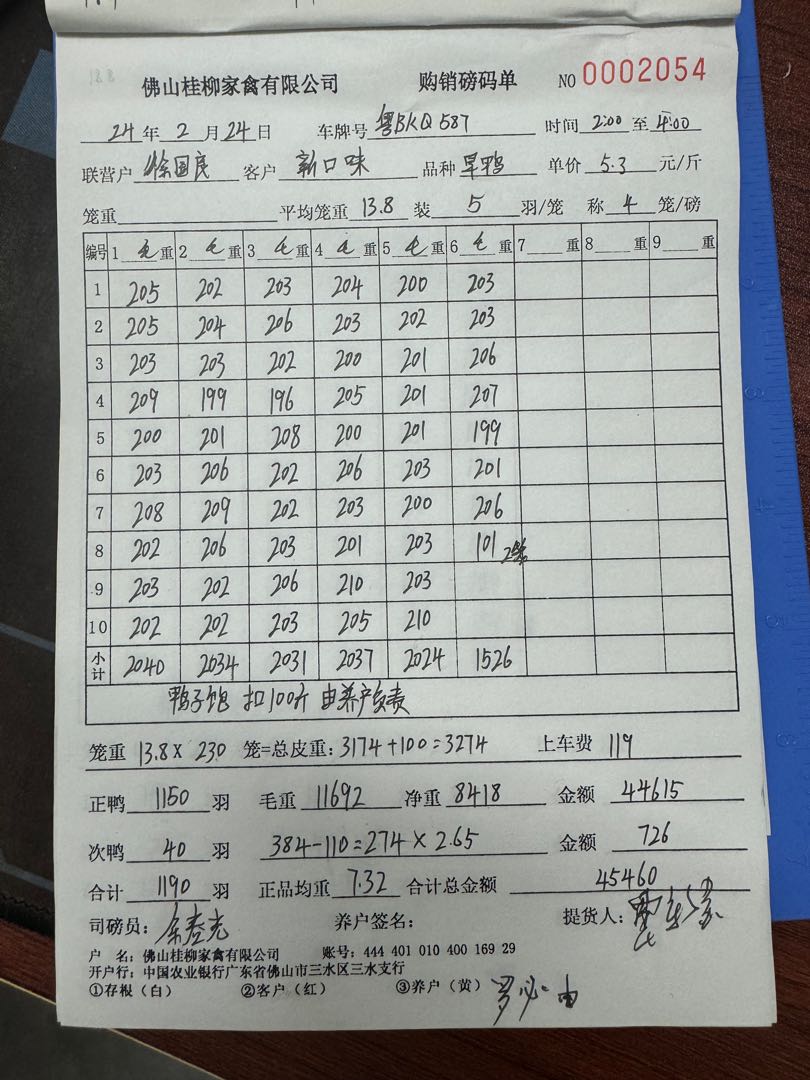 佛山桂柳家禽有限公司 购销磅码单 NO 0002054
24 年 2 月 24 日 车牌号 粤BKQ587 时间 2:00 至 4:00
联营户 徐国良 客户 新口味 品种 旱鸭 单价 5.3 元/斤
笼重 平均笼重 13.8 装 5 羽/笼 称 4 笼/磅
编号 1 毛重 2 毛重 3 毛重 4 毛重 5 毛重 6 毛重 7 重 8 重 9 重
1 205 202 203 204 200 203
2 205 204 206 203 202 203
3 203 203 202 200 201 206
4 209 199 196 205 201 207
5 200 201 208 200 201 199
6 203 206 202 206 203 201
7 208 209 202 203 200 206
8 202 206 203 201 203 101 2笼
9 203 202 206 210 203
10 202 202 203 205 210
小计 2040 2034 2031 2037 2024 1526
鸭子饱 扣100斤 由养户负责
笼重 13.8 X 230 笼=总皮重: 3174+100=3274 上车费 119
正鸭 1150 羽 毛重 11692 净重 8418 金额 44615
次鸭 40 羽 384-110=274 × 2.65 金额 726
合计 1190 羽 正品均重 7.32 合计总金额 45460
司磅员: 养户签名: 提货人:
户 名: 佛山桂柳家禽有限公司 账号: 444 401 010 400 169 29
开户行: 中国农业银行广东省佛山市三水区三水支行
①存根(白) ②客户(红) ③养户(黄)